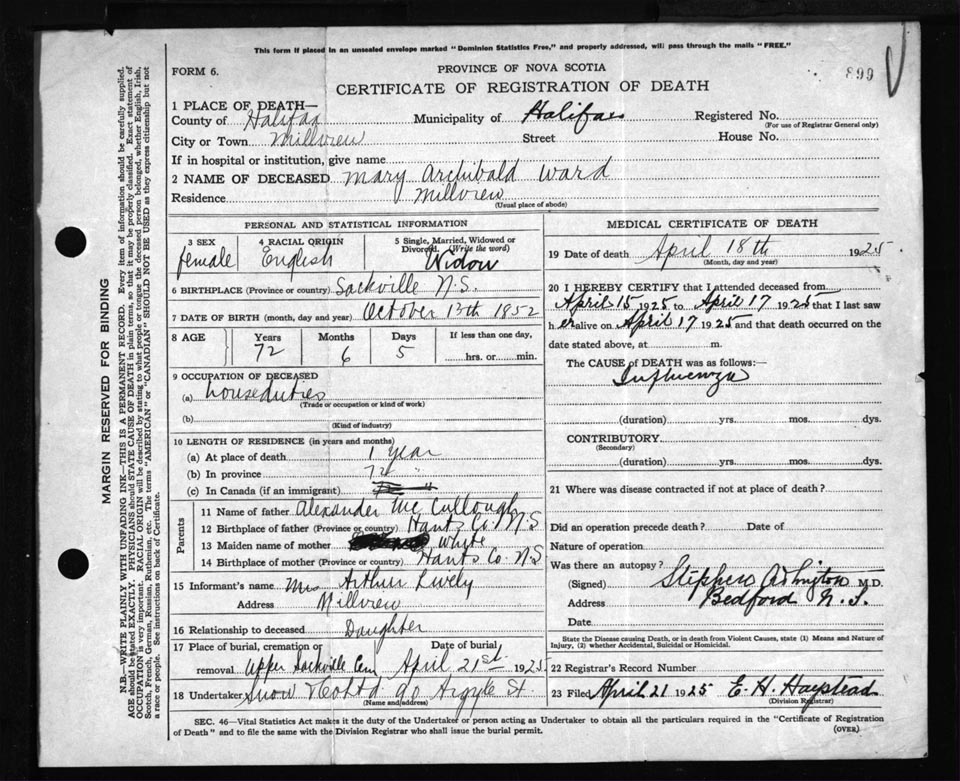 This form if placed in an unsealed envelope marked "Dominion Statistics Free," and properly addressed, will pass through the mails "FREE."
899
FORM 6.
PROVINCE OF NOVA SCOTIA
CERTIFICATE OF REGISTRATION OF DEATH
1 PLACE OF DEATH—
County of Halifax Municipality of Halifax Registered No.
(For use of Registrar General only)
City or Town Millview Street House No.
If in hospital or institution, give name
2 NAME OF DECEASED Mary Archibald Ward
Residence Millview
(Usual place of abode)
PERSONAL AND STATISTICAL INFORMATION
3 SEX 4 RACIAL ORIGIN 5 Single, Married, Widowed or Divorced. (Write the word)
female English Widow
6 BIRTHPLACE (Province or country) Sackville N.S.
7 DATE OF BIRTH (month, day and year) October 13th 1852
8 AGE Years Months Days If less than one day,
72 6 5 hrs. or min.
9 OCCUPATION OF DECEASED
(a) houseduties
(Trade or occupation or kind of work)
(b)
(Kind of industry)
10 LENGTH OF RESIDENCE (in years and months)
(a) At place of death 1 year
(b) In province 72 "
(c) In Canada (if an immigrant)
Parents
11 Name of father Alexander McCullough
12 Birthplace of father (Province or country) Hants Co. N.S
13 Maiden name of mother White
14 Birthplace of mother (Province or country) Hants Co NS
15 Informant's name Mrs Arthur Lively
Address Millview
16 Relationship to deceased Daughter
17 Place of burial, cremation or removal Date of burial
Upper Sackville Cem April 21st 1925
18 Undertaker Snow & Co Ltd 90 Argyle St.
(Name and address)
MEDICAL CERTIFICATE OF DEATH
19 Date of death April 18th 1925
(Month, day and year)
20 I HEREBY CERTIFY that I attended deceased from
April 15 1925 to April 17 1925 that I last saw
h er alive on April 17 1925 and that death occurred on the
date stated above, at m.
The CAUSE of DEATH was as follows:—
Influenza
(duration) yrs. mos. dys.
CONTRIBUTORY
(Secondary)
(duration) yrs. mos. dys.
21 Where was disease contracted if not at place of death?
Did an operation precede death? Date of
Nature of operation
Was there an autopsy?
(Signed) Stephen M.D.
Address Bedford N.S.
Date
State the Disease causing Death, or in death from Violent Causes, state (1) Means and Nature of
Injury, and (2) whether Accidental, Suicidal or Homicidal.
22 Registrar's Record Number
23 Filed April 21 1925 E. H.
(Division Registrar)
SEC. 46—Vital Statistics Act makes it the duty of the Undertaker or person acting as Undertaker to obtain all the particulars required in the "Certificate of Registration
of Death" and to file the same with the Division Registrar who shall issue the burial permit.
(OVER)
MARGIN RESERVED FOR BINDING
N.B.—WRITE PLAINLY WITH UNFADING INK—THIS IS A PERMANENT RECORD. Every item of information should be carefully supplied.
AGE should be stated EXACTLY. PHYSICIANS should STATE CAUSE OF DEATH in plain terms, so that it may be properly classified. Exact statement of
OCCUPATION is very important. RACIAL ORIGIN will be described by stating to what people or tongue the deceased person belonged, whether English, Irish,
Scotch, French, German, Russian, Ruthenian, etc. The terms "AMERICAN" or "CANADIAN" SHOULD NOT BE USED as they express citizenship but not
a race or people. See instructions on back of Certificate.